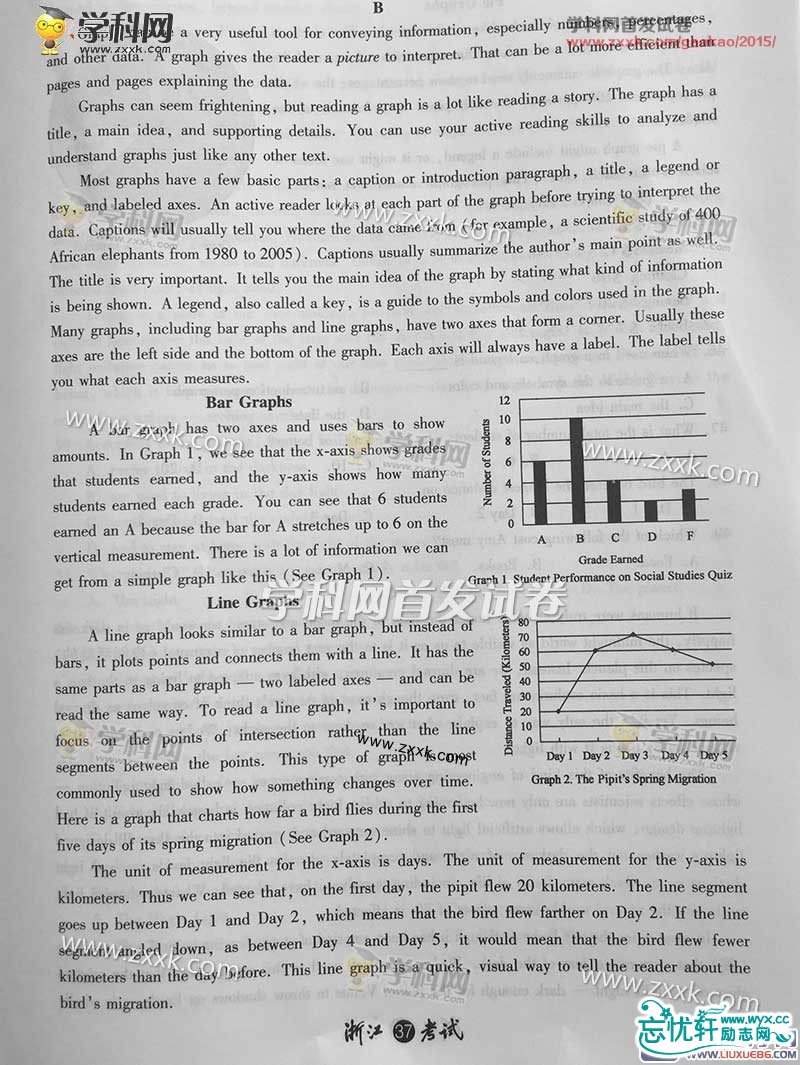 B
a very useful tool for conveying information, especially numbers, percentages,
and other data. A graph gives the reader a picture to interpret. That can be a lot more efficient than
pages and pages explaining the data.
Graphs can seem frightening, but reading a graph is a lot like reading a story. The graph has a
title, a main idea, and supporting details. You can use your active reading skills to analyze and
understand graphs just like any other text.
Most graphs have a few basic parts: a caption or introduction paragraph, a title, a legend or
key, and labeled axes. An active reader looks at each part of the graph before trying to interpret the
data. Captions will usually tell you where the data came from (for example, a scientific study of 400
African elephants from 1980 to 2005). Captions usually summarize the author's main point as well.
The title is very important. It tells you the main idea of the graph by stating what kind of information
is being shown. A legend, also called a key, is a guide to the symbols and colors used in the graph.
Many graphs, including bar graphs and line graphs, have two axes that form a corner. Usually these
axes are the left side and the bottom of the graph. Each axis will always have a label. The label tells
you what each axis measures.
Bar Graphs
A bar graph has two axes and uses bars to show
amounts. In Graph 1, we see that the x-axis shows grades
that students earned, and the y-axis shows how many
students earned each grade. You can see that 6 students
earned an A because the bar for A stretches up to 6 on the
vertical measurement. There is a lot of information we can
get from a simple graph like this (See Graph 1).
Number of Students
12
10
8
6
4
2
0
A B C D F
Grade Earned
Graph 1. Student Performance on Social Studies Quiz
Line Graphs
A line graph looks similar to a bar graph, but instead of
bars, it plots points and connects them with a line. It has the
same parts as a bar graph — two labeled axes — and can be
read the same way. To read a line graph, it's important to
focus on the points of intersection rather than the line
segments between the points. This type of graph is most
commonly used to show how something changes over time.
Here is a graph that charts how far a bird flies during the first
five days of its spring migration (See Graph 2).
Distance Traveled (Kilometers)
80
70
60
50
40
30
20
10
0
Day 1 Day 2 Day 3 Day 4 Day 5
Graph 2. The Pipit's Spring Migration
The unit of measurement for the x-axis is days. The unit of measurement for the y-axis is
kilometers. Thus we can see that, on the first day, the pipit flew 20 kilometers. The line segment
goes up between Day 1 and Day 2, which means that the bird flew farther on Day 2. If the line
segment angled down, as between Day 4 and Day 5, it would mean that the bird flew fewer
kilometers than the day before. This line graph is a quick, visual way to tell the reader about the
bird's migration.
浙江 37 考试
学科网
www.zxxk.com
学科网首发试卷
www.zxxk.com/gaokao/2015/
学科网
www.zxxk.com
学科网
www.zxxk.com
学科网
www.zxxk.com
学科网首发试卷
学科网
www.zxxk.com
学科网
www.zxxk.com
学科网
www.zxxk.com
忘忧轩 www.wyx.cc
励志网
www.LIUXUE86.COM